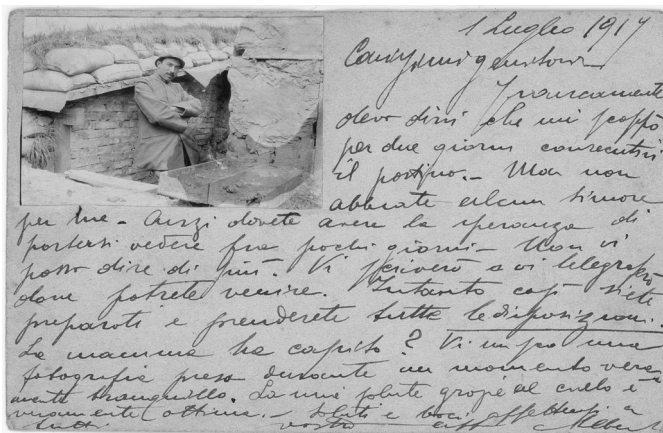 1 Luglio 1917
Carissimi genitori
Francamente
devo dirvi che mi scappò
per due giorni consecutivi
il postino. - Ma non
abbiate alcun timore
per me - Anzi dovete avere la speranza di
potersi vedere fra pochi giorni - Non vi
posso dire di più. Vi scriverò o vi telegrafo
dove potrete venire. Intanto così siete
preparati e prenderete tutte le disposizioni.
La mamma ha capito? Vi una
fotografia presa durante un momento vera
mente tranquillo. La mia salute grazie al cielo è
veramente ottima. - Saluti e baci affettuosi a
tutti vostro aff Albert